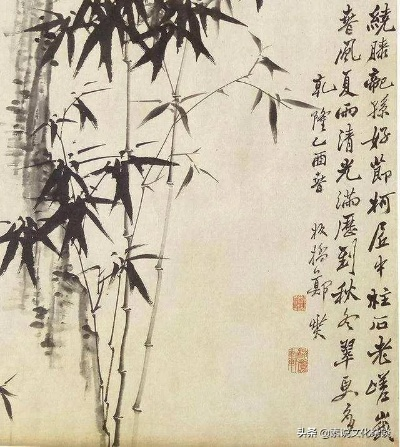 繞膝龍孫好節柯居中柱石老嵯峨
春風夏雨清光滿歷到秋冬翠更多
乾隆乙酉春 板橋鄭燮
头条 @文化